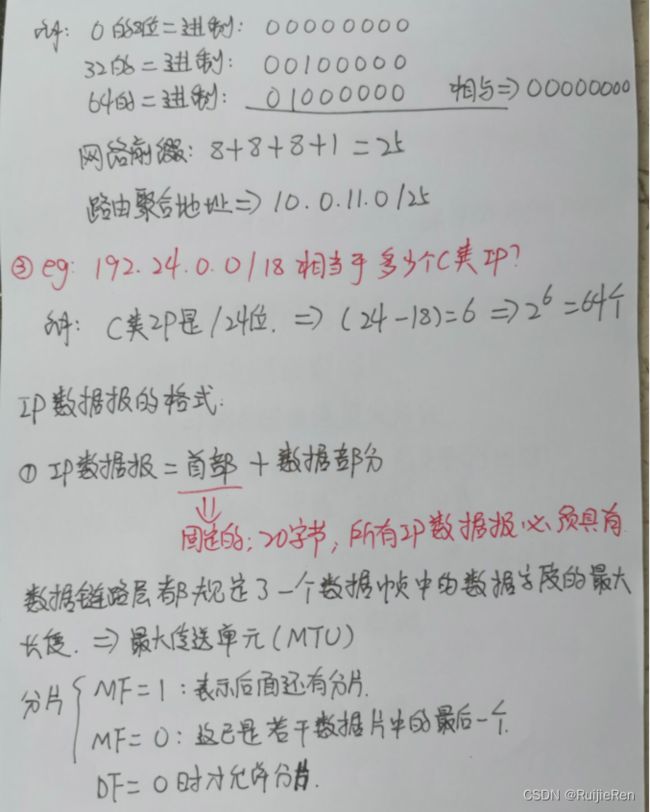 解: 0的8位二进制: 00000000
32的二进制: 00100000
64的二进制: 01000000 相与⇒00000000
网络前缀: 8+8+8+1=25
路由聚合地址⇒10.0.11.0/25
③ eg: 192.24.0.0/18 相当于多少个C类IP?
解: C类IP是/24位. ⇒(24-18)=6⇒2⁶=64个
IP数据报的格式:
① IP数据报=首部+数据部分
⇓
固定的: 20字节, 所有IP数据报必须具有
数据链路层都规定了一个数据帧中的数据字段的最大
长度. ⇒最大传送单元(MTU)
分片 { MF=1: 表示后面还有分片.
MF=0: 这已是若干数据片中的最后一个.
DF=0时才允许分片.
CSDN @RuijieRen